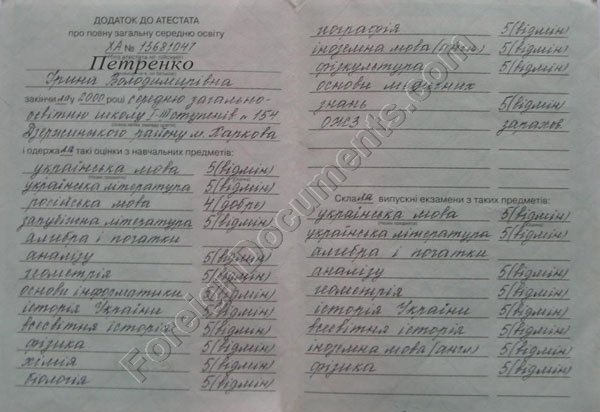 ДОДАТОК ДО АТЕСТАТА
про повну загальну середню освіту
ХА № 13681047
Петренко
Ірина Володимирівна
закінчила у 2000 році середню загально-
освітню школу І-ІІІ ступенів № 154
Дзержинського району м. Харкова
і одержала такі оцінки з навчальних предметів:
українська мова 5 (відмін)
українська література 5 (відмін)
російська мова 4 (добре)
зарубіжна література 5 (відмін)
алгебра і початки
аналізу 5 (відмін)
геометрія 5 (відмін)
основи інформатики 5 (відмін)
історія України 5 (відмін)
всесвітня історія 5 (відмін)
фізика 5 (відмін)
хімія 5 (відмін)
біологія 5 (відмін)
географія 5 (відмін)
іноземна мова (англ) 5 (відмін)
фізкультура 5 (відмін)
основи медичних
знань 5 (відмін)
ОЖЗ зарахов.
Склала випускні екзамени з таких предметів:
українська мова 5 (відмін)
українська література 5 (відмін)
алгебра і початки
аналізу 5 (відмін)
геометрія 5 (відмін)
історія України 5 (відмін)
всесвітня історія 5 (відмін)
іноземна мова (англ) 5 (відмін)
фізика 5 (відмін)
ForeignDocuments.com